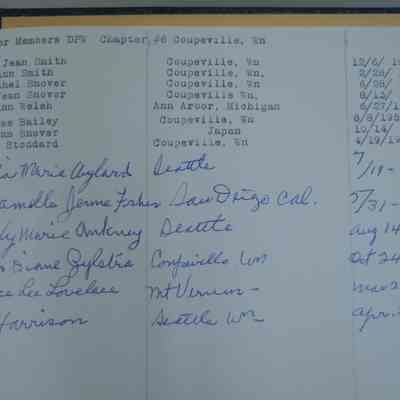 or Members DPW Chapter #6 Coupeville, Wn
Jean Smith Coupeville, Wn 12/6/
nn Smith Coupeville, Wn. 2/28/
hel Snover Coupeville, Wn. 6/26/
Jean Snover Coupeville Wn, 8/13/
nn Welsh Ann Arbor, Michigan 6/27/1
es Bailey Coupeville, Wn 8/8/195
nn Snover Japan 10/14/
Stoddard Coupeville, Wn 4/19/19
Marie Aylard Seattle 7/19-
Jerme Fisher San Diego Cal. 5/31-
ly Marie Ankney Seattle Aug 14
Diane Zylstra Coupeville Wn Oct 24
ce Lee Lovelace Mt Vernon - Mar 2
Harrison Seattle Wn Apr.